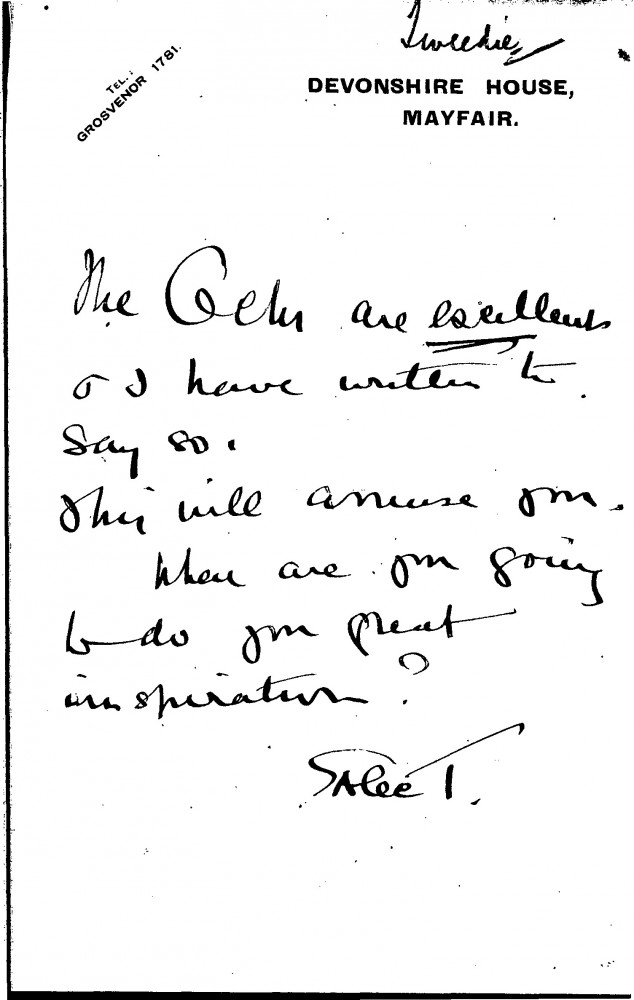 Tweedie
TEL.:
GROSVENOR 1781.
DEVONSHIRE HOUSE,
MAYFAIR.
The are excellent
& I have written to
say so.
This will amuse you.
When are you going
to do your great
inspiration?